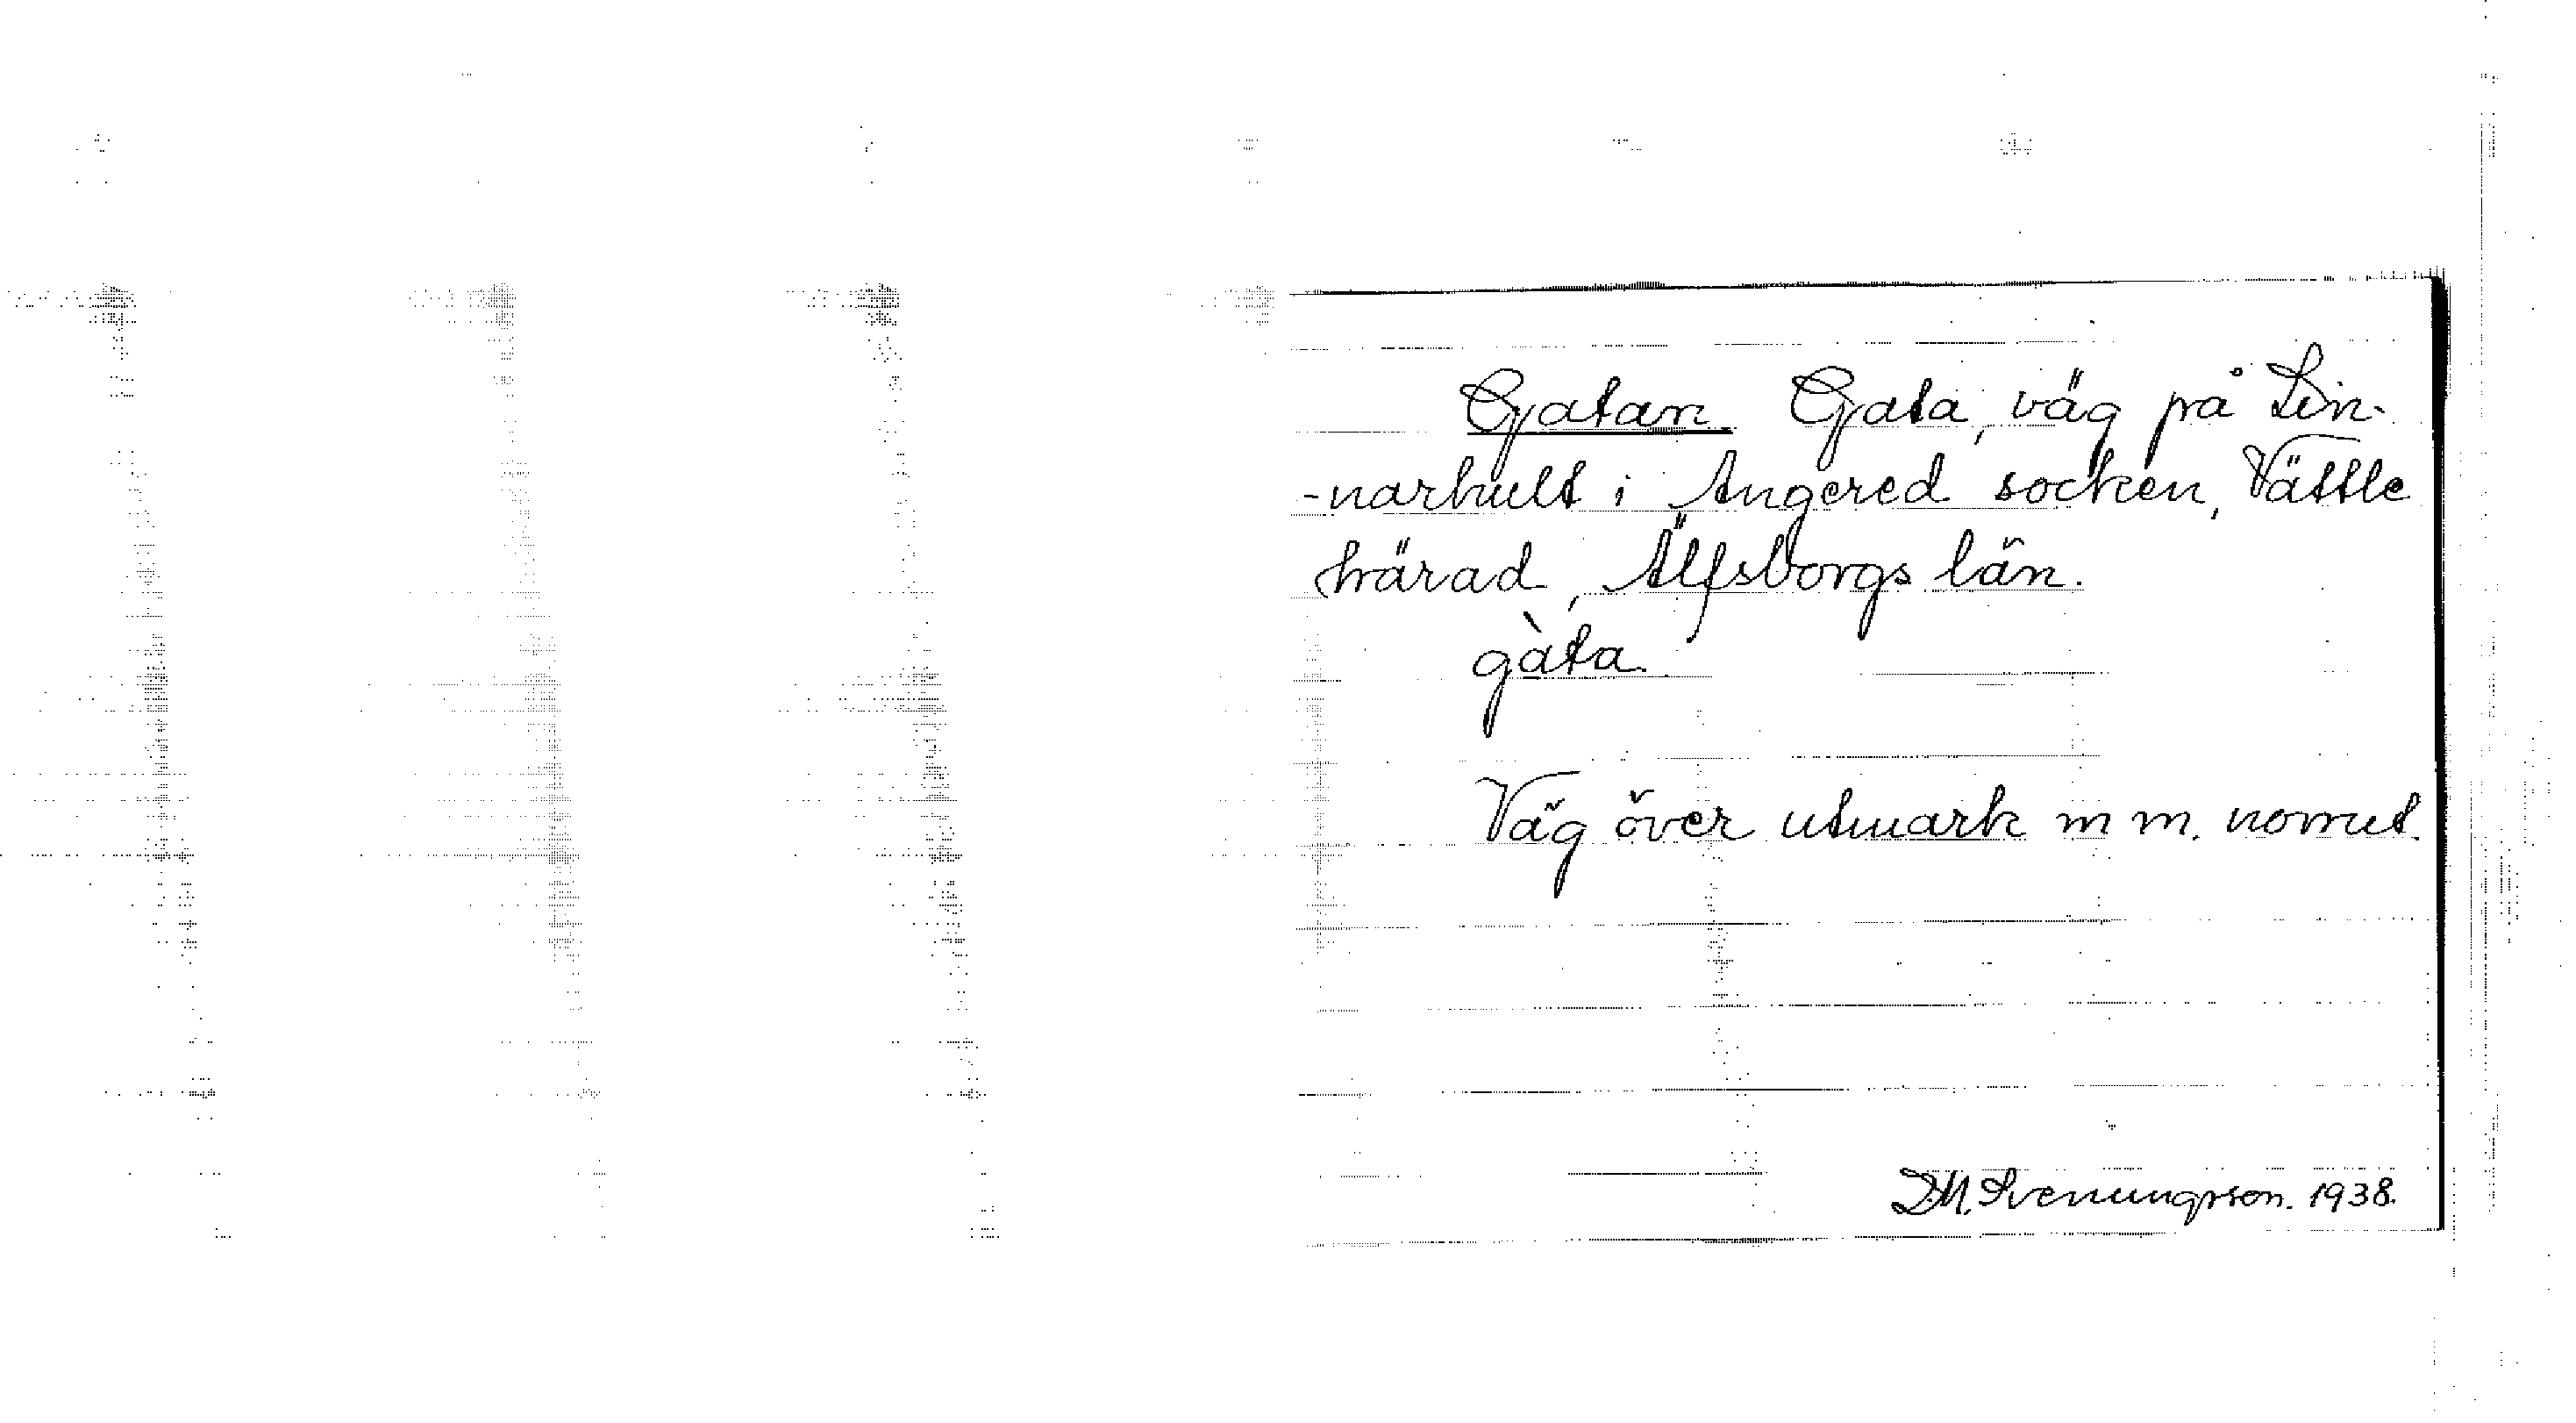 Gatan Gata, väg på Lin-
-narhult i Angered socken, Vättle
härad, Älfsborgs län.
gàta
Väg över utmark m m. norrut.
D.M. Svenungsson. 1938.